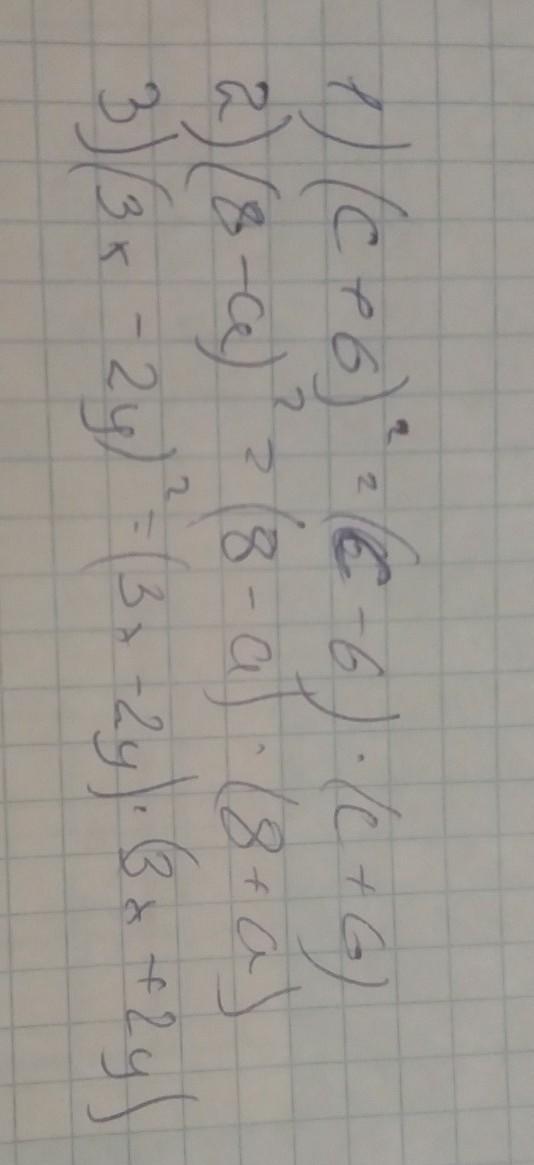 1) (c + 6)² = (c - 6) · (c + 6)
2) (8 - a)² = (8 - a) · (8 + a)
3) (3x - 2y)² = (3x - 2y) · (3x + 2y)